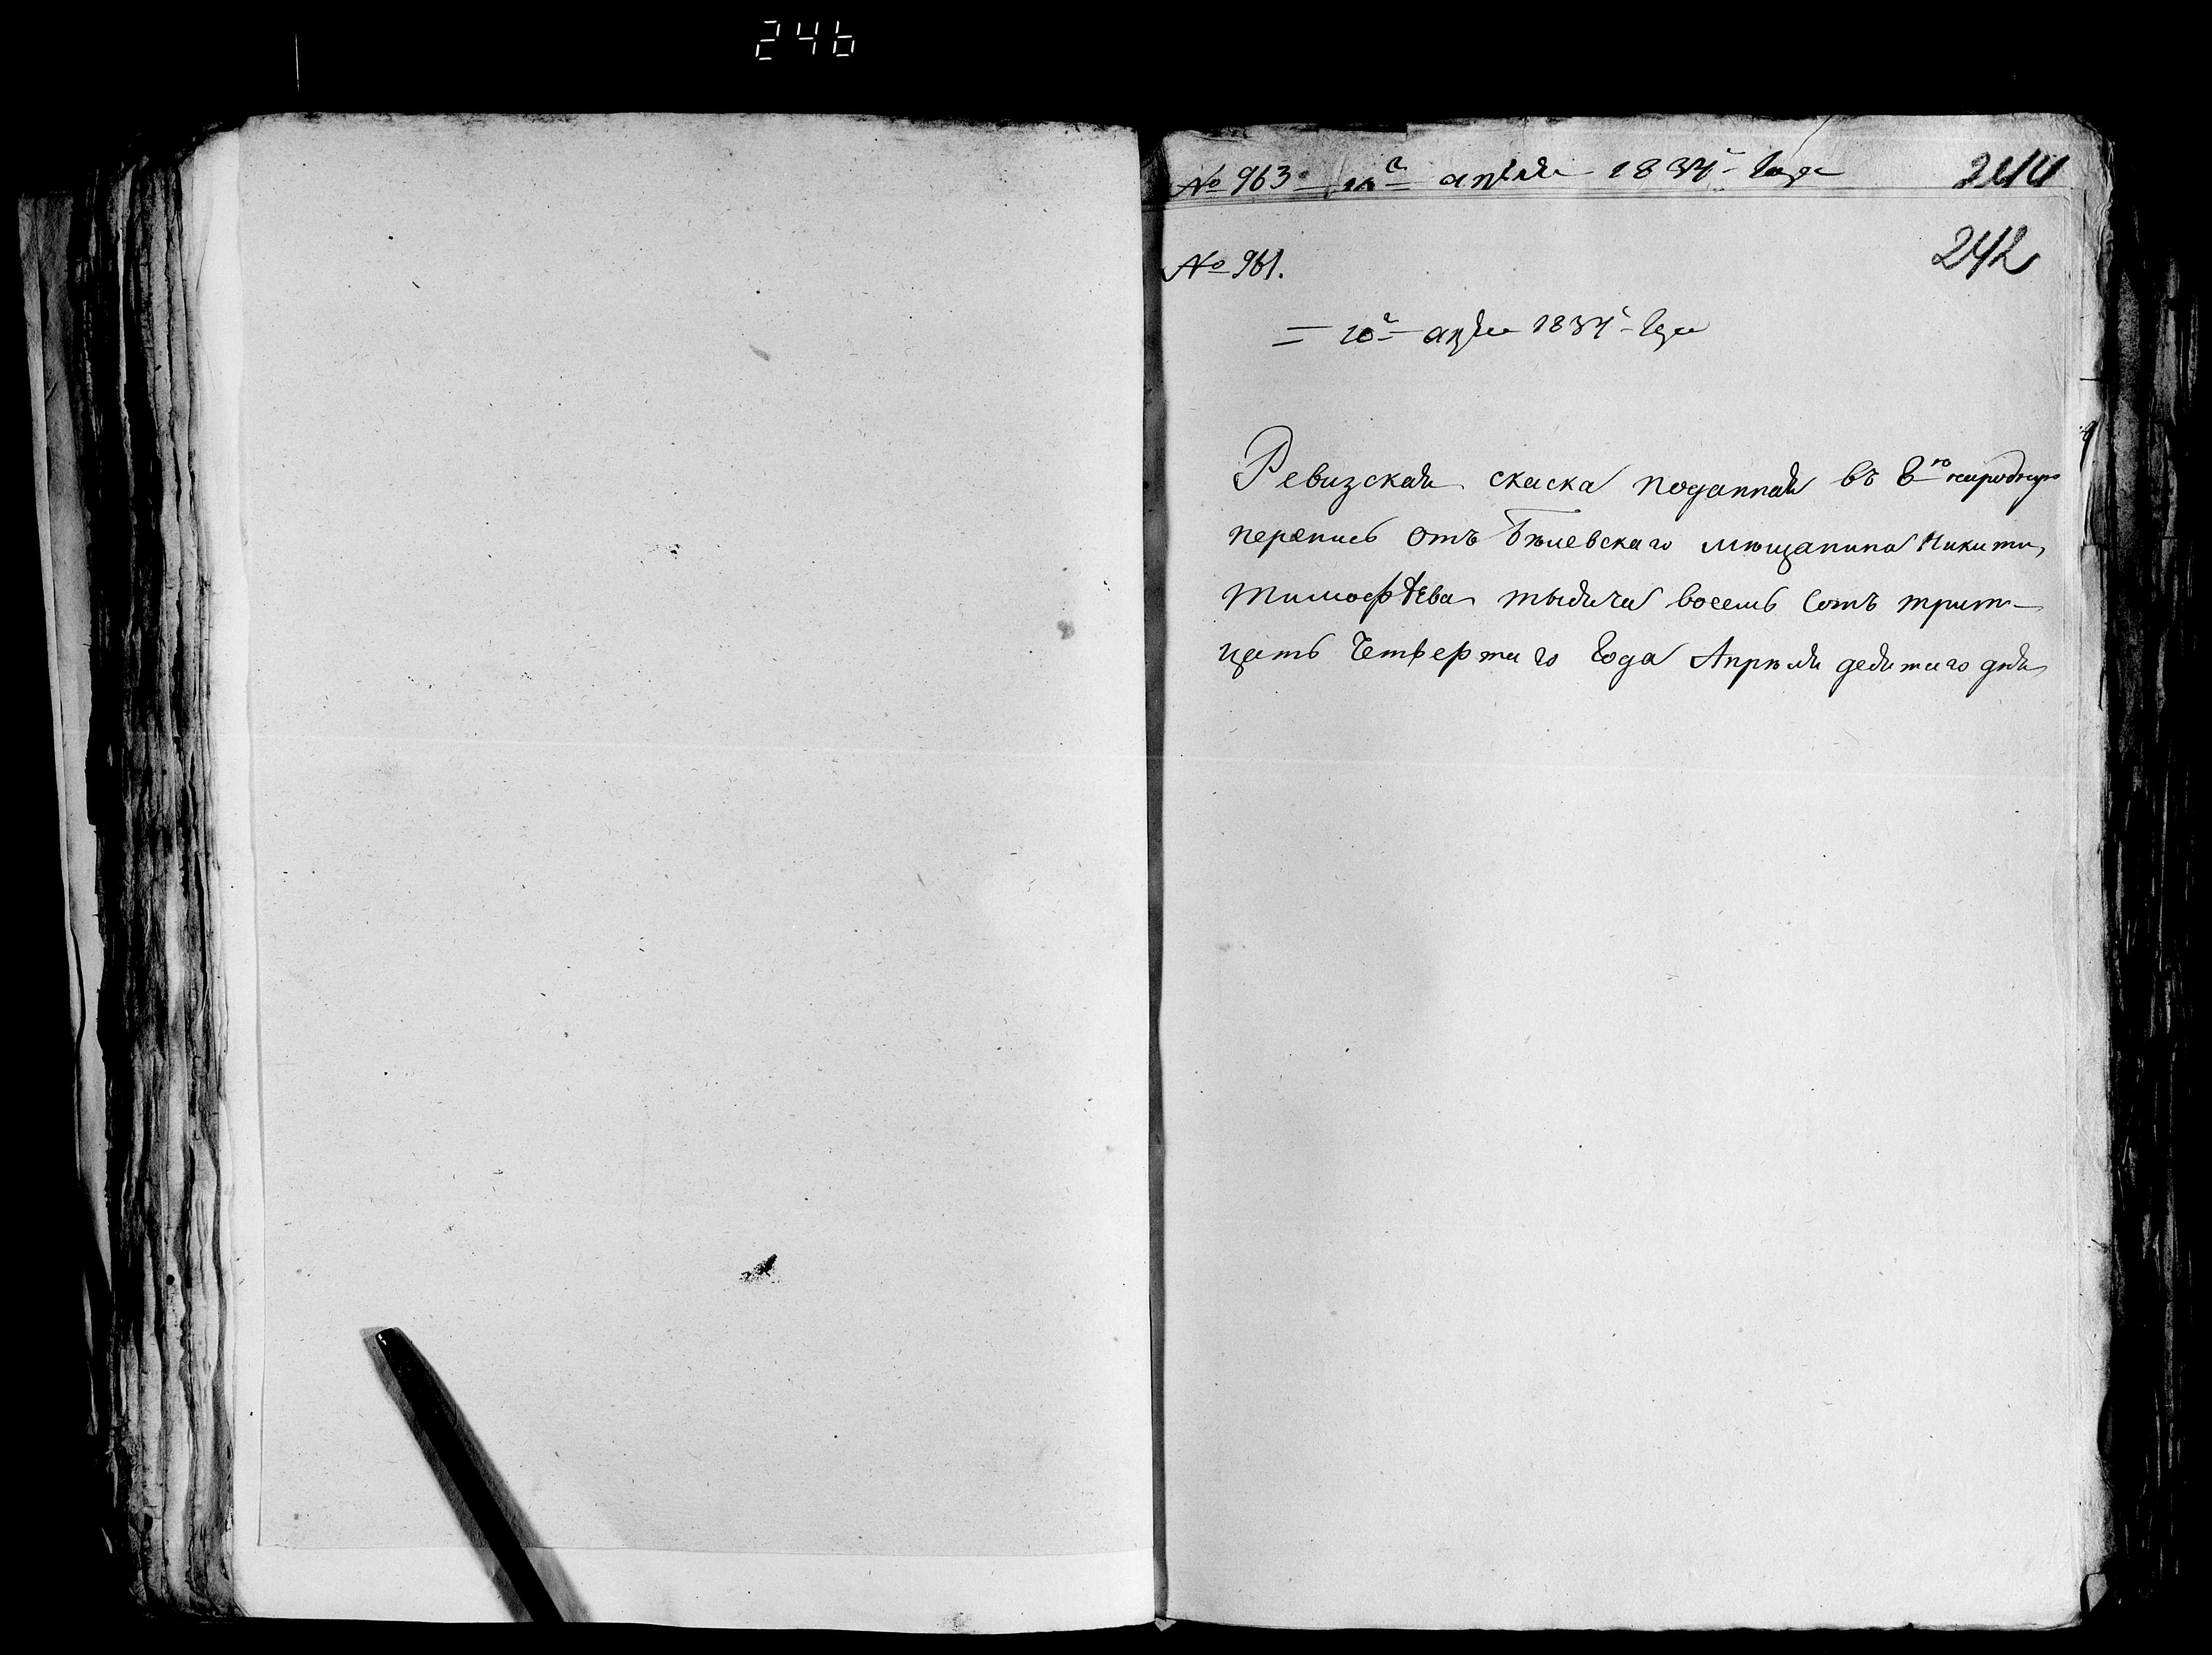 246
№ 963 10го апреля 1834 года 244
№ 961. 242
10го апре 1834 года
Ревизская скаска поданная въ 8ю народную
перепись отъ Бѣлевскаго мѣщанина Никиты
Тимофѣева тысяча восемь сотъ трит-
цать четвертаго года Апрѣля девятаго дня